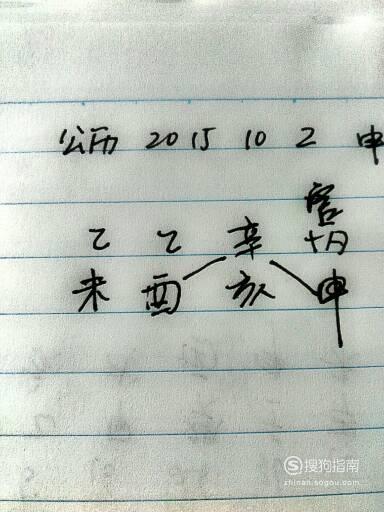 公历 2015 10 2 申
乙 乙 辛 十月
未 酉 亥 申
搜狗指南
zhinan.sogou.com